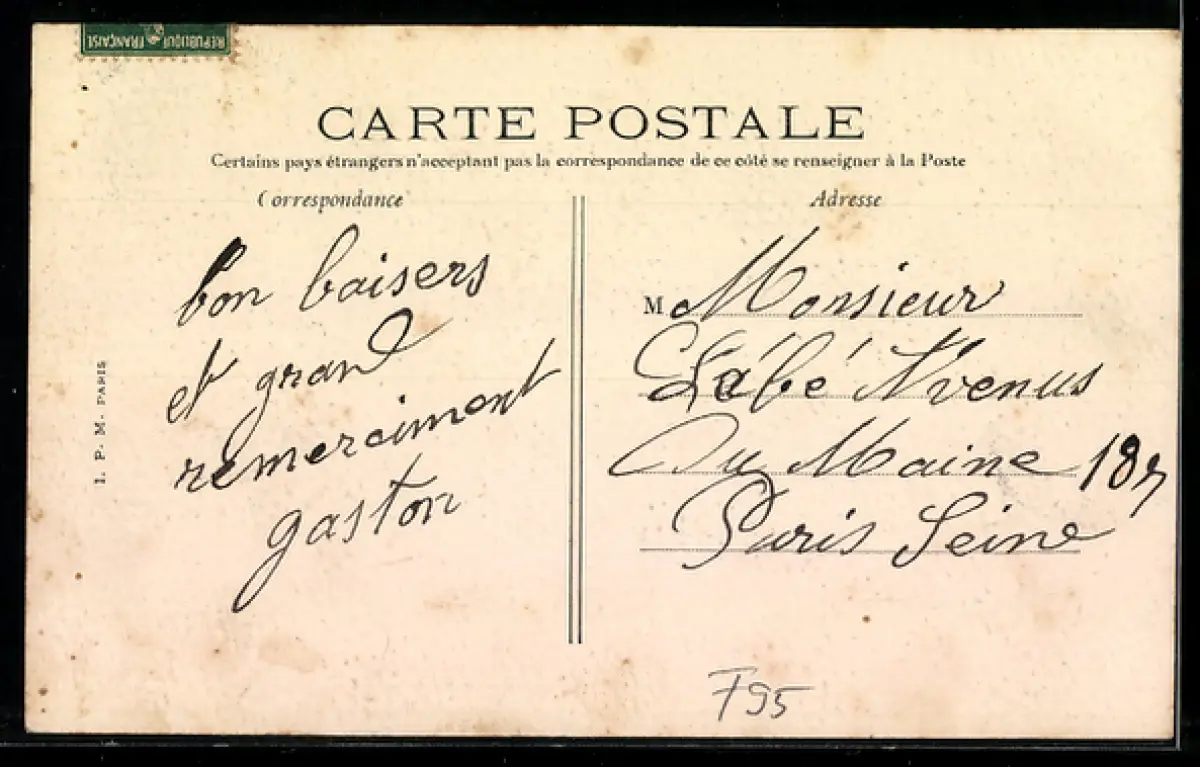 REPUBLIQUE FRANÇAISE
CARTE POSTALE
Certains pays étrangers n'acceptant pas la correspondance de ce côté se renseigner à la Poste
Correspondance
Adresse
bon baisers
et grand
remerciment
gaston
M Monsieur
Lábé Nvenus
Du Maine 187
Paris Seine
I. P. M. PARIS
F95